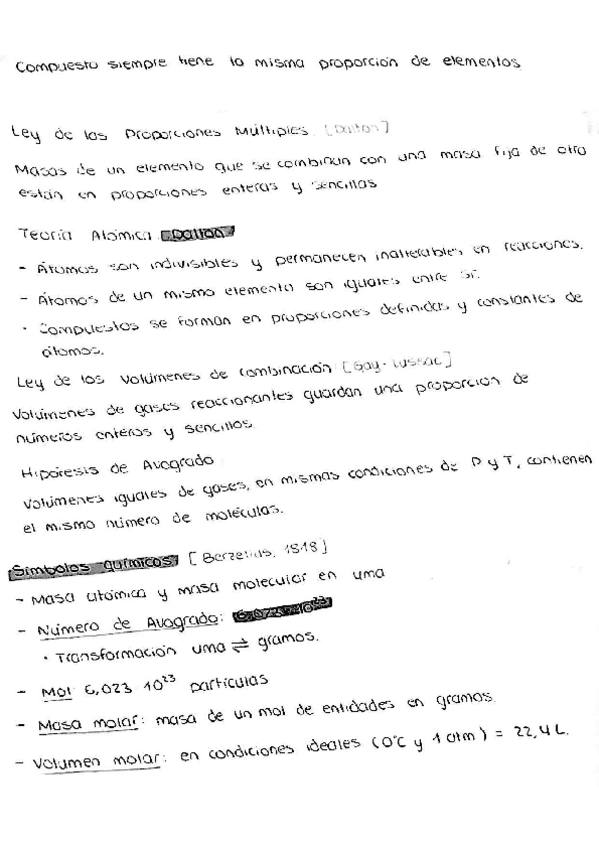 Compuesto siempre tiene la misma proporción de elementos
Ley de las Proporciones Múltiples [Dalton]
Masas de un elemento que se combinan con una masa fija de otro
están en proporciones enteras y sencillas
Teoría Atómica Dalton
- Átomos son indivisibles y permanecen inalterables en reacciones.
- Átomos de un mismo elemento son iguales entre sí.
· Compuestos se forman en proporciones definidas y constantes de
átomos.
Ley de los Volúmenes de combinación [Gay-Lussac]
Volúmenes de gases reaccionantes guardan una proporción de
números enteros y sencillos
Hipótesis de Avogrado
Volúmenes iguales de gases, en mismas condiciones de P y T, contienen
el mismo número de moléculas.
Símbolos químicos [Berzelius, 1818]
- Masa atómica y masa molecular en uma
- Número de Avogrado: 6,023 10²³
· Transformación uma ⇌ gramos.
- Mol 6,023 10²³ partículas
- Masa molar: masa de un mol de entidades en gramos.
- Volumen molar: en condiciones ideales (0°C y 1 atm) = 22,4 L.